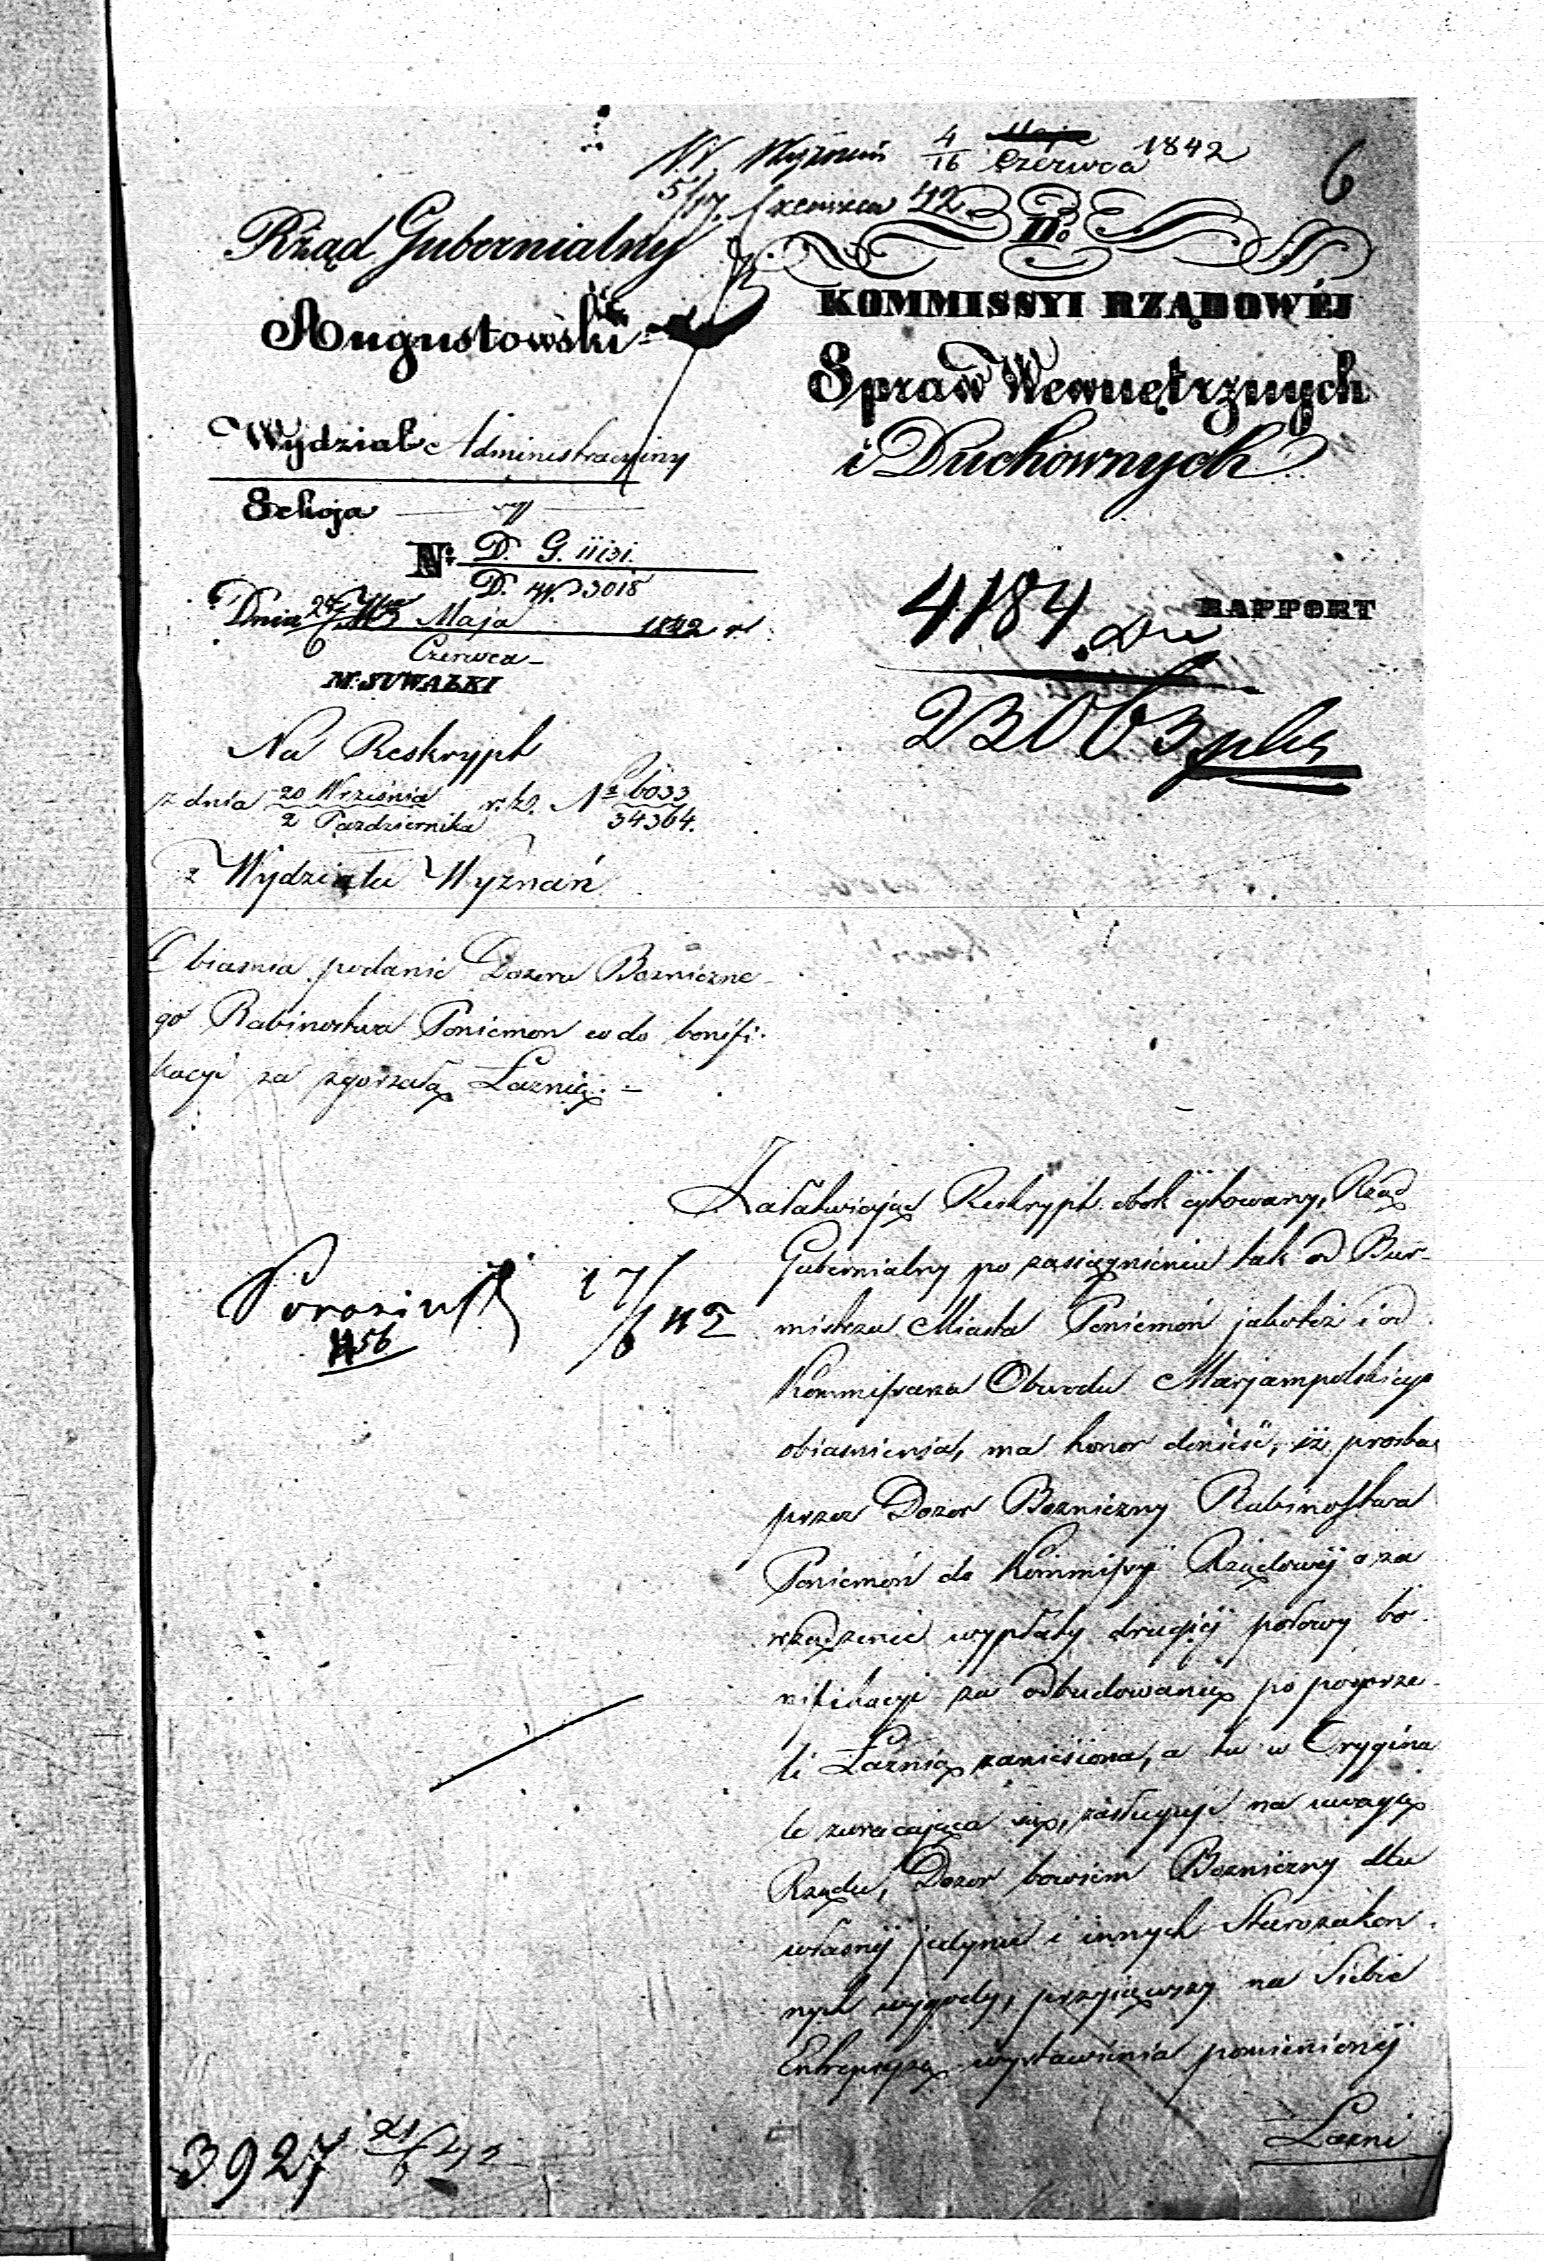 W. Wyznań 4/16 Czerwca 1842
5/17 Czerwca 42
6
Rząd Gubernialny
Augustowski
Wydział Administracyiny
Sekcja
N: D. G. 11131.
D. W. 23018
Dnia 6 Maja 1842 r.
Czerwca
M. SUWAŁKI
Do
KOMMISSYI RZĄDOWÉJ
Spraw Wewnętrznych
i Duchownych
RAPPORT
4184
23063
Na Reskrypt
z dnia 20 Września / 2 Pazdziernika r. z. Nr 6033 / 34364.
z Wydziału Wyznań
Obiasnia podanie Dozoru Bozniczne-
go Rabinostwa Poniemon co do bonifi-
kacyi za zgorzałą Łaznię. –
17/6 42
Załatwiając Reskrypt obok cytowany, Rząd
Gubernialny po zasiągnieniu tak od Bur-
mistrza Miasta Poniemoń jakoteż i od
Kommissarza Obwodu Marjampolskiego
obiasnienia, ma honor donieść, iż prosba
przez Dozor Bozniczny Rabinostwa
Poniemoń do Kommissyi Rządowéj o za-
rządzenie wypłaty drugiéj połowy bo-
nifikacyi za odbudowanię po pogorze-
li Łaznię zaniesiona, a tu w Orygina-
le zwracająca się, zasługuje na uwagę
Rządu, Dozor bowiem Bozniczny dla
własnéj jedynie i innych Starozakon-
nych wygody, przyjąwszy na Siebie
Entrepryzę wystawienia pomienionéj
Łazni
3927 21/6 42